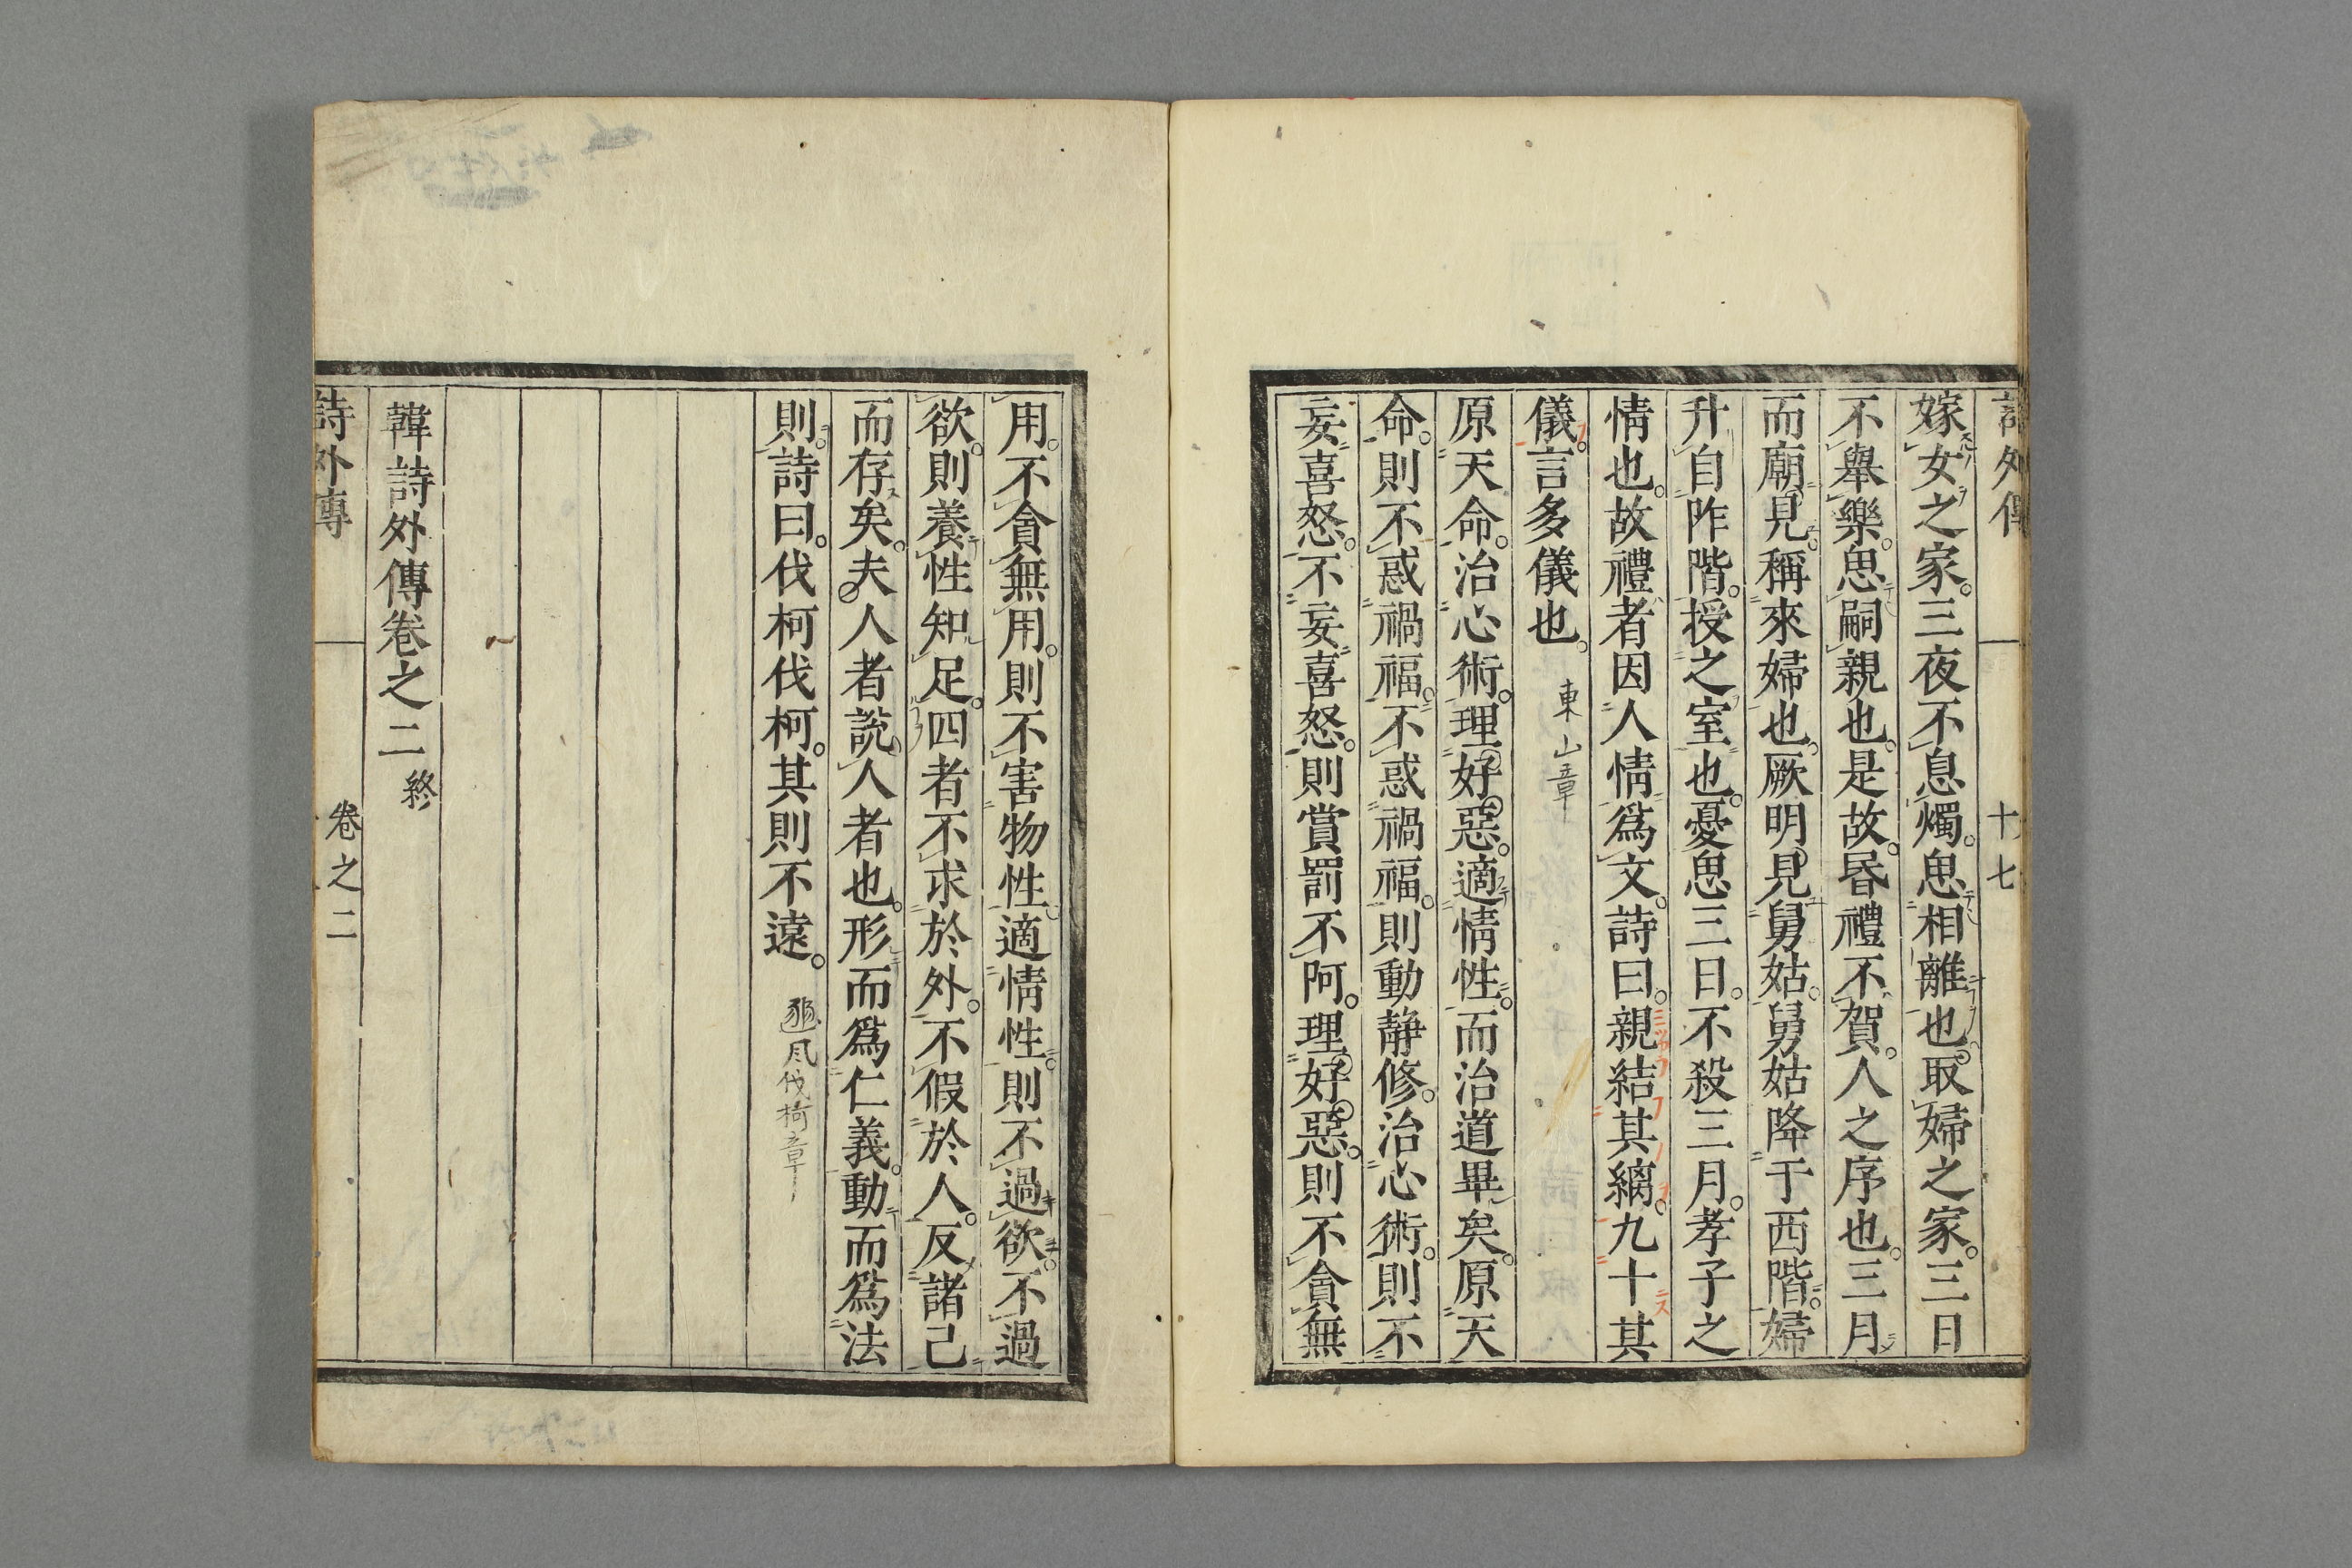 詩外傳
十七
嫁女之家。三夜不息燭。思相離也。取婦之家。三日
不舉樂。思嗣親也。是故。昏禮不賀。人之序也。三月
而廟見。稱來婦也。厥明見舅姑。舅姑降于西階。婦
升自阼階。授之室也。憂思三日。不殺三月。孝子之
情也。故禮者因人情爲文。詩曰。親結其縭。九十其
儀。言多儀也。東山章
原天命。治心術。理好惡。適情性。而治道畢矣。原天
命。則不惑禍福。不惑禍福。則動靜修。治心術。則不
妄喜怒。不妄喜怒。則賞罰不阿。理好惡。則不貪無
用。不貪無用。則不害物性。適情性。則不過欲。不過
欲。則養性知足。四者不求於外。不假於人。反諸己
而存矣。夫人者說人者也。形而爲仁義。動而爲法
則。詩曰。伐柯伐柯。其則不遠。豳風伐柯章
韓詩外傳卷之二終
詩外傳
卷之二